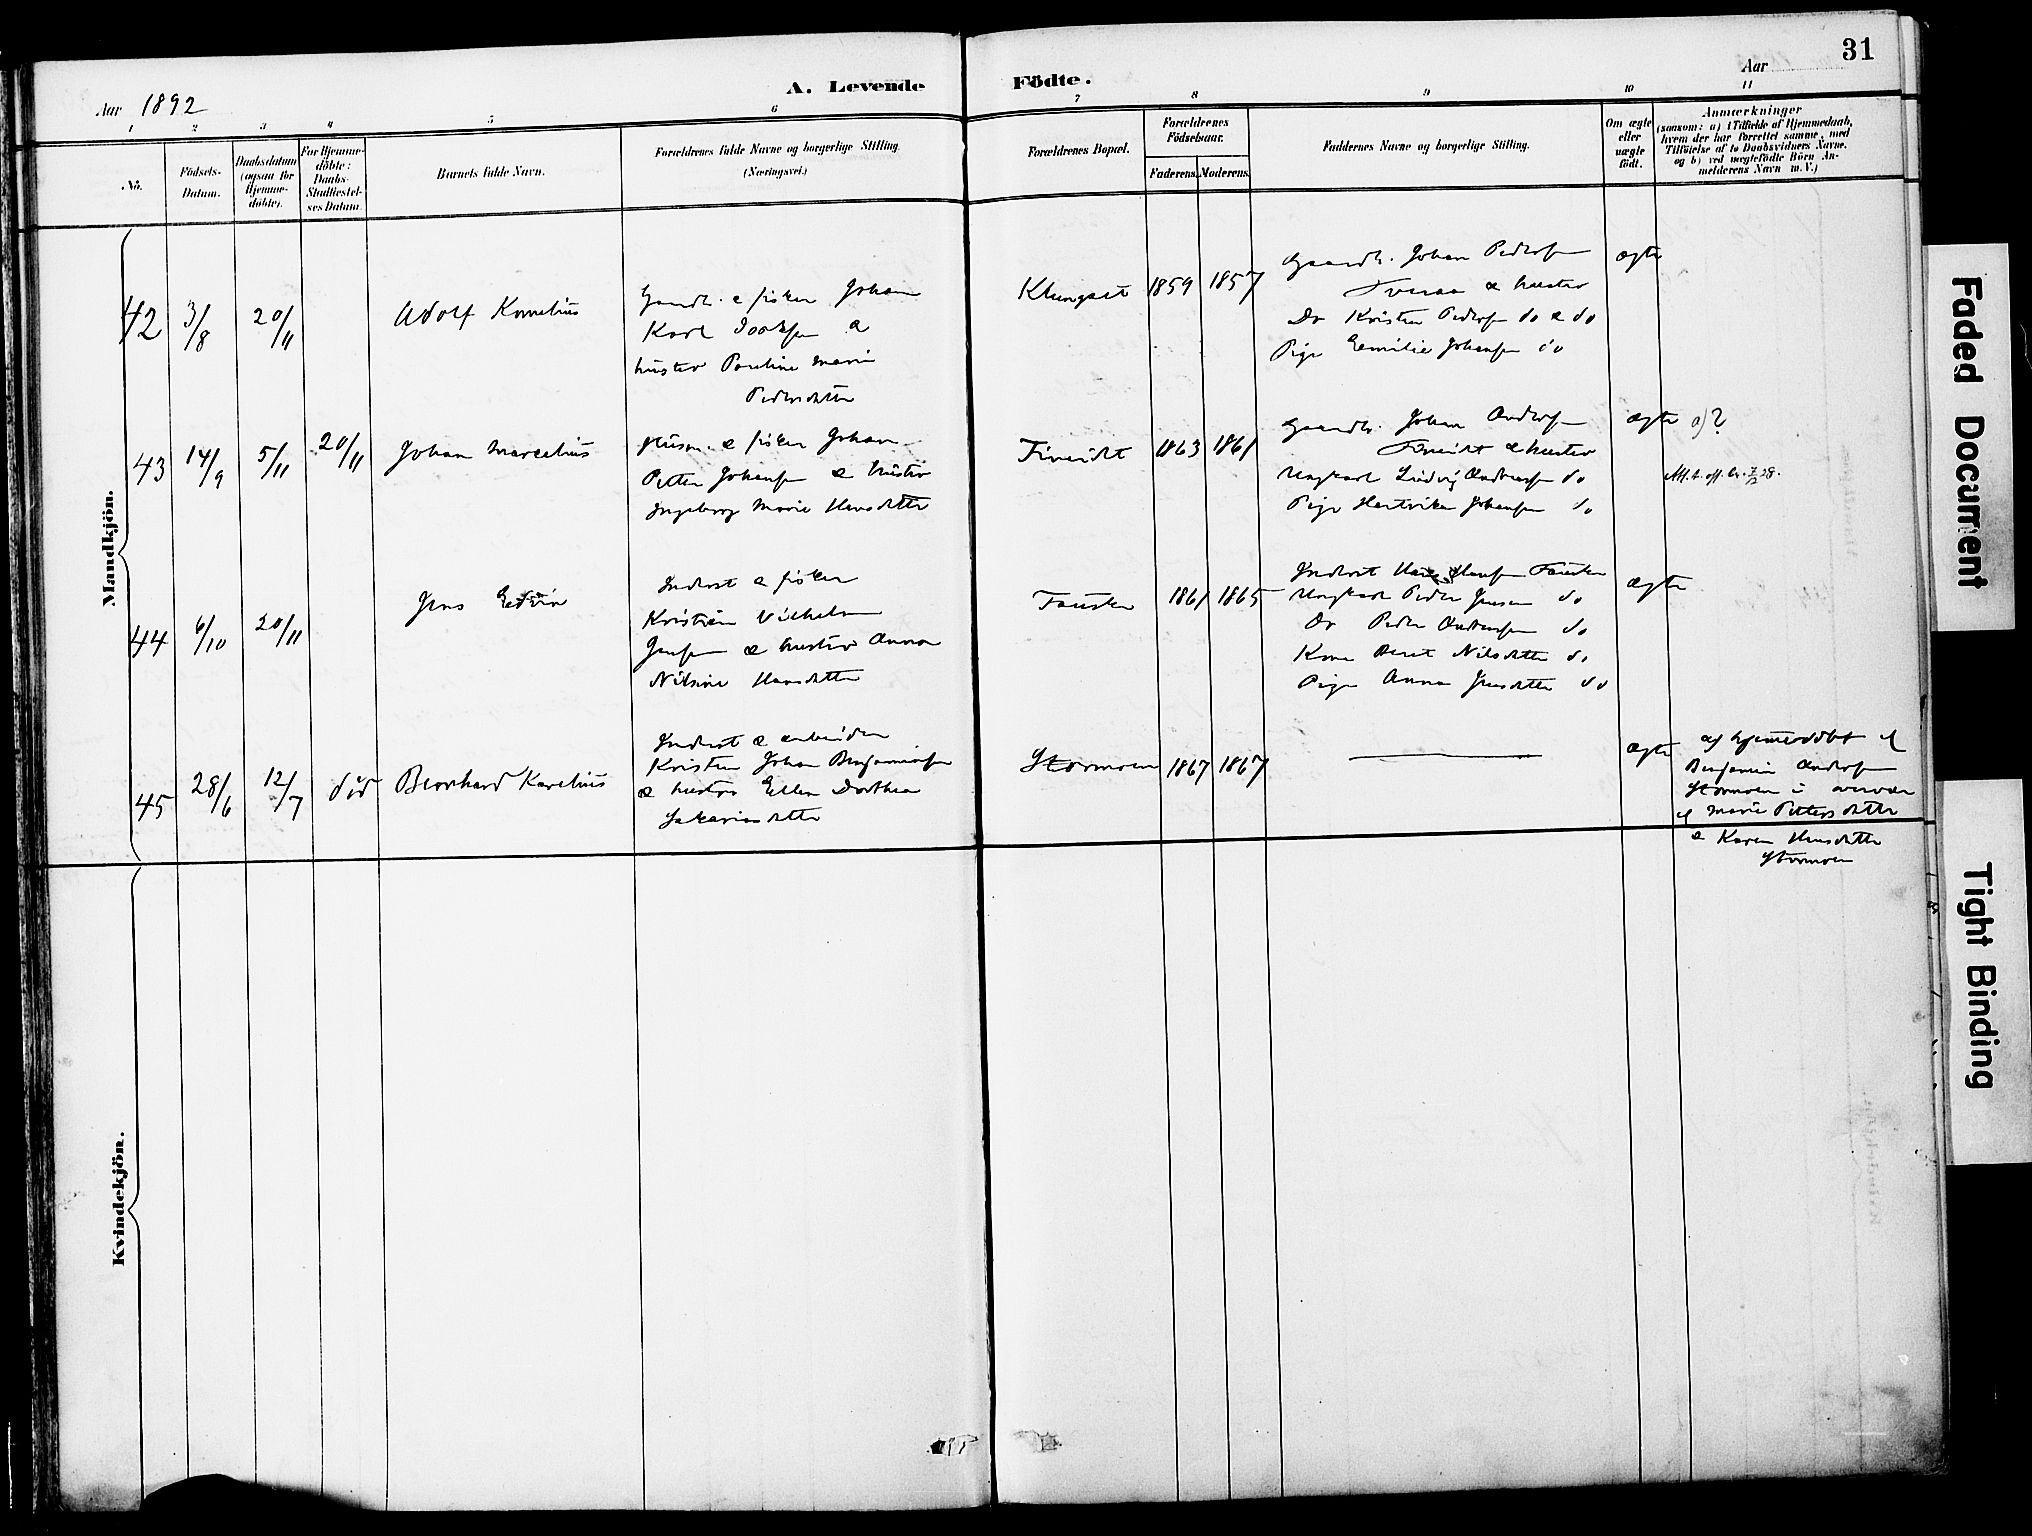 31
A. Levende Födte.
Aar 1892
Aar
1 2 3 4 5 6 7 8 9 10 11
No.
Födsels-
Datum.
Daabsdatum
(ogsaa for
Hjemme-
döbte).
For Hjemme-
döbte:
Daabs-
Stadfæstel-
ses Datum.
Barnets fulde Navn.
Forældrenes fulde Navne og borgerlige Stilling.
(Næringsvei.)
Forældrenes Bopæl.
Forældrenes
Födselsaar.
Faderens. Moderens.
Faddernes Navne og borgerlige Stilling.
Om ægte
eller
uægte
født.
Anmærkninger
(saasom: a) i Tilfælde af Hjemmedaab,
hvem der har forrettet samme, med
Tilföielse af to Daabsvidners Navne,
og b) ved uægtefödte Börn An-
melderens Navn m. V.)
Mandkjön.
42 3/8 20/11
Adolf Kornelius
Gaardb. & fisker Johan
Karl &
hustru Pauline Marie
Pedersdatter
Klungset 1859 1857
Gaardb. Johan Pedersen
Tveraa & hustru
Do Kristen Pedersen do & do
Pige Emilie Johansen do
ægte
43 14/9 5/11 20/11
Johan Marcelius
Husm. & fisker Johan
Petter Johansen & hustru
Ingeborg Marie Hansdatter
Fineidet 1863 1861
Gaardb. Johan Andersen
Fineidet & hustru
Ungkarl Ludvig Andersen do
Pige Hartvikka Johansen do
ægte a)?
Att. t. off. br. 7/12 28.
44 6/10 20/11
Jens Edvin
Inderst & fisker
Kristian Vilhelm
Jensen & hustru Anna
Nilsine Hansdatter
Fauske 1861 1865
Inderst Hans Hansen Fauske
Ungkarl Peder Jensen do
Do Peder Andersen do
Kone Beret Nilsdatter do
Pige Anna Jensdatter do
ægte
45 28/6 12/7 død
Bernhard Karelius
Inderst & arbeider
Kristen Johan Benjaminsen
& hustru Ellen Dorthea
Sakariasdatter
Stormoen 1867 1867
ægte
a) hjemmedøbt af
Benjamin Andersen
Stormoen i overvær
af Marie Pettersdatter
& Karen Hansdatter
Stormoen
Kvindekjön.
Faded Document
Tight Binding